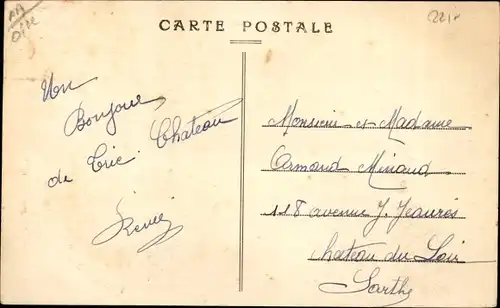 CARTE POSTALE
221
Un
Bonjour
de Trie. Chateau
Monsieur et Madame
Armand Minaud
118 avenue J. Jeaurès
Chateau du Loir
Sarthe